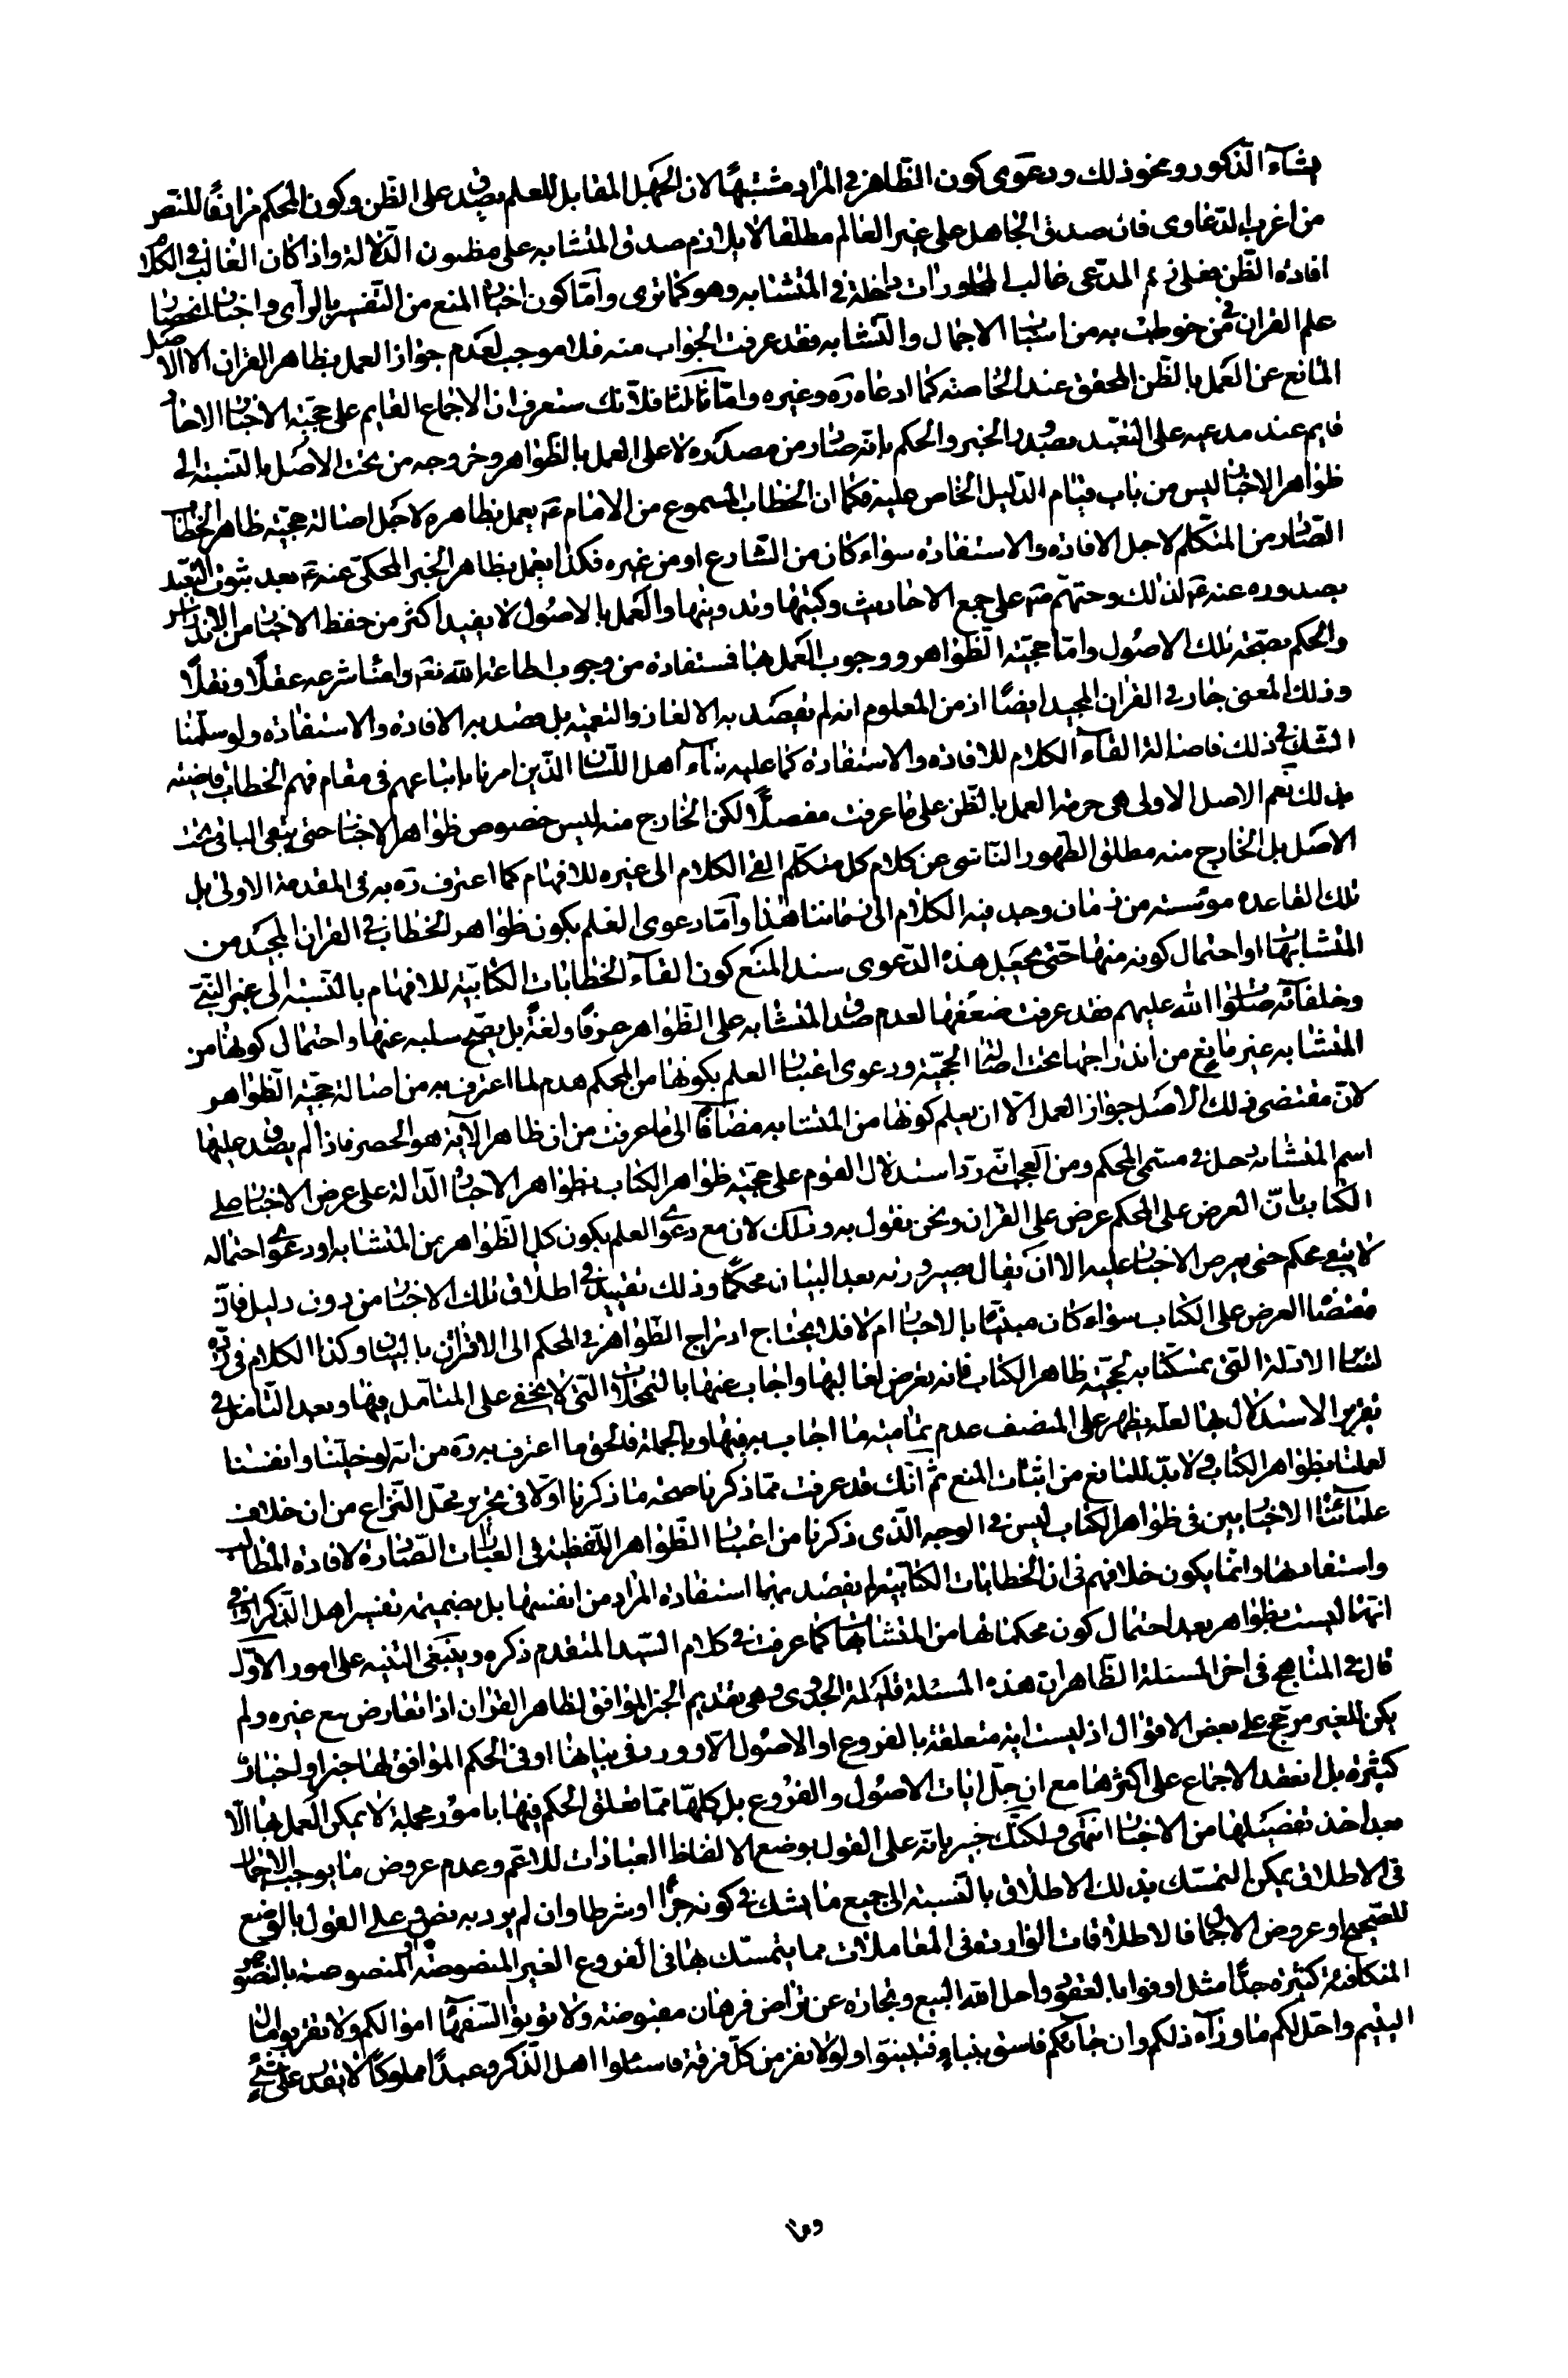 يشاء الذكور ونحو ذلك ودعوى كون الظاهر في المراد مشتبها لان الجهل المقابل للعلم يصدق على الظن وكون المحكم مرادفا للنص
من اغرب الدعاوى فان صدق الجاهل على غير العالم مطلقا لا يلازم صدق المتشابه على مظنون الدلالة واذا كان الغالب في الكلام
افادة الظن فعلى زعم المدعى غالب المحاورات داخلة في المتشابه وهو كما ترى واما كون اخبار المنع من التفسير بالرأى واخبار انحصار
علم القران في من خوطب به من اسباب الاجمال والتشابه فقد عرفت الجواب منه فلا موجب لعدم جواز العمل بظاهر القران الا الاصل
المانع عن العمل بالظن المحقق عند الخاصة كما ادعاه ره وغيره واما ثالثا فلانك ستعرف ان الاجماع القايم على حجية الاخبار الاحاد
قايم عند مدعيه على التعبد بصدور الخبر والحكم بانه صادر من مصدره لا على العمل بالظواهر وخروجه من تحت الاصل بالنسبة الى
ظواهر الاخبار ليس من باب قيام الدليل الخاص عليه فكما ان الخطاب المسموع من الامام ع يعمل بظاهره لاجل اصالة حجية ظاهر الخطاب
الصادر من المتكلم لاجل الافادة والاستفادة سواء كان من الشارع او من غيره فكذا يعمل بظاهر الخبر المحكى عنه ع بعد ثبوت التعبد
بصدوره عنه ع لذلك وحثهم ع على جمع الاحاديث وكتبتها وتدوينها والعمل بالاصول لا يفيد اكثر من حفظ الاخبار من الاندراس
والحكم بصحة تلك الاصول واما حجية الظواهر ووجوب العمل بها فمستفادة من وجوب اطاعة الله تعم وامناء شرعه عقلا ونقلا
وذلك المعنى جار في القران المجيد ايضا اذ من المعلوم انه لم يقصد به الالغاز والتعمية بل قصد به الافادة والاستفادة ولو سلمنا
الشك في ذلك فاصالة القاء الكلام للافادة والاستفادة كما عليه بناء اهل اللسان الذين امرنا باتباعهم في مقام فهم الخطاب قاضية
بذلك نعم الاصل الاولى هى حرمة العمل بالظن على ما عرفت مفصلا لكن الخارج منه ليس خصوص ظواهر الاخبار حتى يبقى الباقى تحت
الاصل بل الخارج منه مطلق الظهور الناشى عن كلام كل متكلم القى الكلام الى غيره للافهام كما اعترف ره به في المقدمة الاولى بل
تلك القاعدة مؤسسة من زمان وجد فيه الكلام الى زماننا هذا واما دعوى العلم بكون ظواهر الخطاب في القران المجيد من
المتشابهات او احتمال كونه منها حتى يجعل هذه الدعوى سند المنع كون القاء الخطابات الكتابية للافهام بالنسبة الى غير النبى
وخلفائه صلوات الله عليهم فقد عرفت ضعفها لعدم صدق المتشابه على الظواهر عرفا ولغة بل يصح سلبه عنها واحتمال كونها من
المتشابه غير مانع من اندراجها تحت اصالة الحجية ودعوى اعتبار العلم بكونها من المحكم هدم لما اعترف به من اصالة حجية الظواهر
لان مقتضى ذلك الاصل جواز العمل الا ان يعلم كونها من المتشابه مضافا الى ما عرفت من ان ظاهر الآية هو الحصر فاذا لم يصدق عليها
اسم المتشابه دخل في مسمى المحكم ومن العجب انه رد استدلال القوم على حجية ظواهر الكتاب بظواهر الاخبار الدالة على عرض الاخبار على
الكتاب بان العرض على المحكم عرض على القران ونحن نقول به وذلك لان مع دعوى العلم بكون كل الظواهر من المتشابه او دعوى احتماله
لا يبقى محكم حتى يعرض الاخبار عليه الا ان يقال بصيرورته بعد البيان محكما وذلك تقييد في اطلاق تلك الاخبار من دون دليل فان
مقتضاها العرض على الكتاب سواء كان مبينا بالاخبار ام لا فلا يحتاج ادراج الظواهر في المحكم الى الاقتران بالبيان وكذا الكلام في رده
لساير الادلة التى تمسكنا به لحجية ظاهر الكتاب فانه تعرض لغالبها واجاب عنها بالتمحلات التى لا يخفى على المتامل فيها وبعد التامل في
تقرير الاستدلال بها لعله يظهر على المنصف عدم تمامية ما اجاب به فيها وبالجملة فالحق ما اعترف به ره من انه لو خلينا وانفسنا
لعملنا بظواهر الكتاب ولابد للمانع من اثبات المنع ثم انك قد عرفت مما ذكرنا صحة ما ذكرنا اولا في تحرير محل النزاع من ان خلاف
علمائنا الاخباريين في ظواهر الكتاب ليس في الوجه الذى ذكرنا من اعتبار الظواهر اللفظية في العبارات الصادرة لافادة المطالب
واستفادتها وانما يكون خلافهم في ان الخطابات الكتابية لم يقصد بها استفادة المراد من انفسها بل بضميمة تفسير اهل الذكر او في
انها ليست بظواهر بعد احتمال كون محكماتها من المتشابهات كما عرفت في كلام السيد المتقدم ذكره وينبغى التنبيه على امور الاول
قال في المناهج في اخر المسئلة الظاهر ان هذه المسئلة قليلة الجدوى وهى تقديم الخبر الموافق لظاهر القران اذا تعارض مع غيره ولم
يكن للغير مرجح على بعض الاقوال اذ ليست اية متعلقة بالفروع او الاصول الا وورد في بيانها او في الحكم الموافق لها خبر او اخبار
كثيرة بل انعقد الاجماع على اكثرها مع ان جل ايات الاصول والفروع بل كلها مما تعلق الحكم فيها بامور مجملة لا يمكن العمل بها الا
بعد اخذ تفصيلها من الاخبار انتهى ولكنك خبير بانه على القول بوضع الالفاظ العبادات للاعم وعدم عروض ما يوجب الاجمال
في الاطلاق يمكن التمسك بذلك الاطلاق بالنسبة الى جميع ما يشك في كونه جزءا او شرطا وان لم يرد به نص وعلى القول بالوضع
للصحيح او عروض الاجمال فالاطلاقات الواردة في المعاملات مما يتمسك بها في الفروع الغير المنصوصة او المنصوصة بالنصوص
المتكافئة كثيرة جدا مثل اوفوا بالعقود واحل الله البيع وتجارة عن تراض فرهان مقبوضة ولا تؤتوا السفهاء اموالكم ولا تقربوا مال
اليتيم واحل لكم ما وراء ذلكم وان جاءكم فاسق بنباء فتبينوا ولولا نفر من كل فرقة فاسئلوا اهل الذكر وعبدا مملوكا لا يقدر على شئ